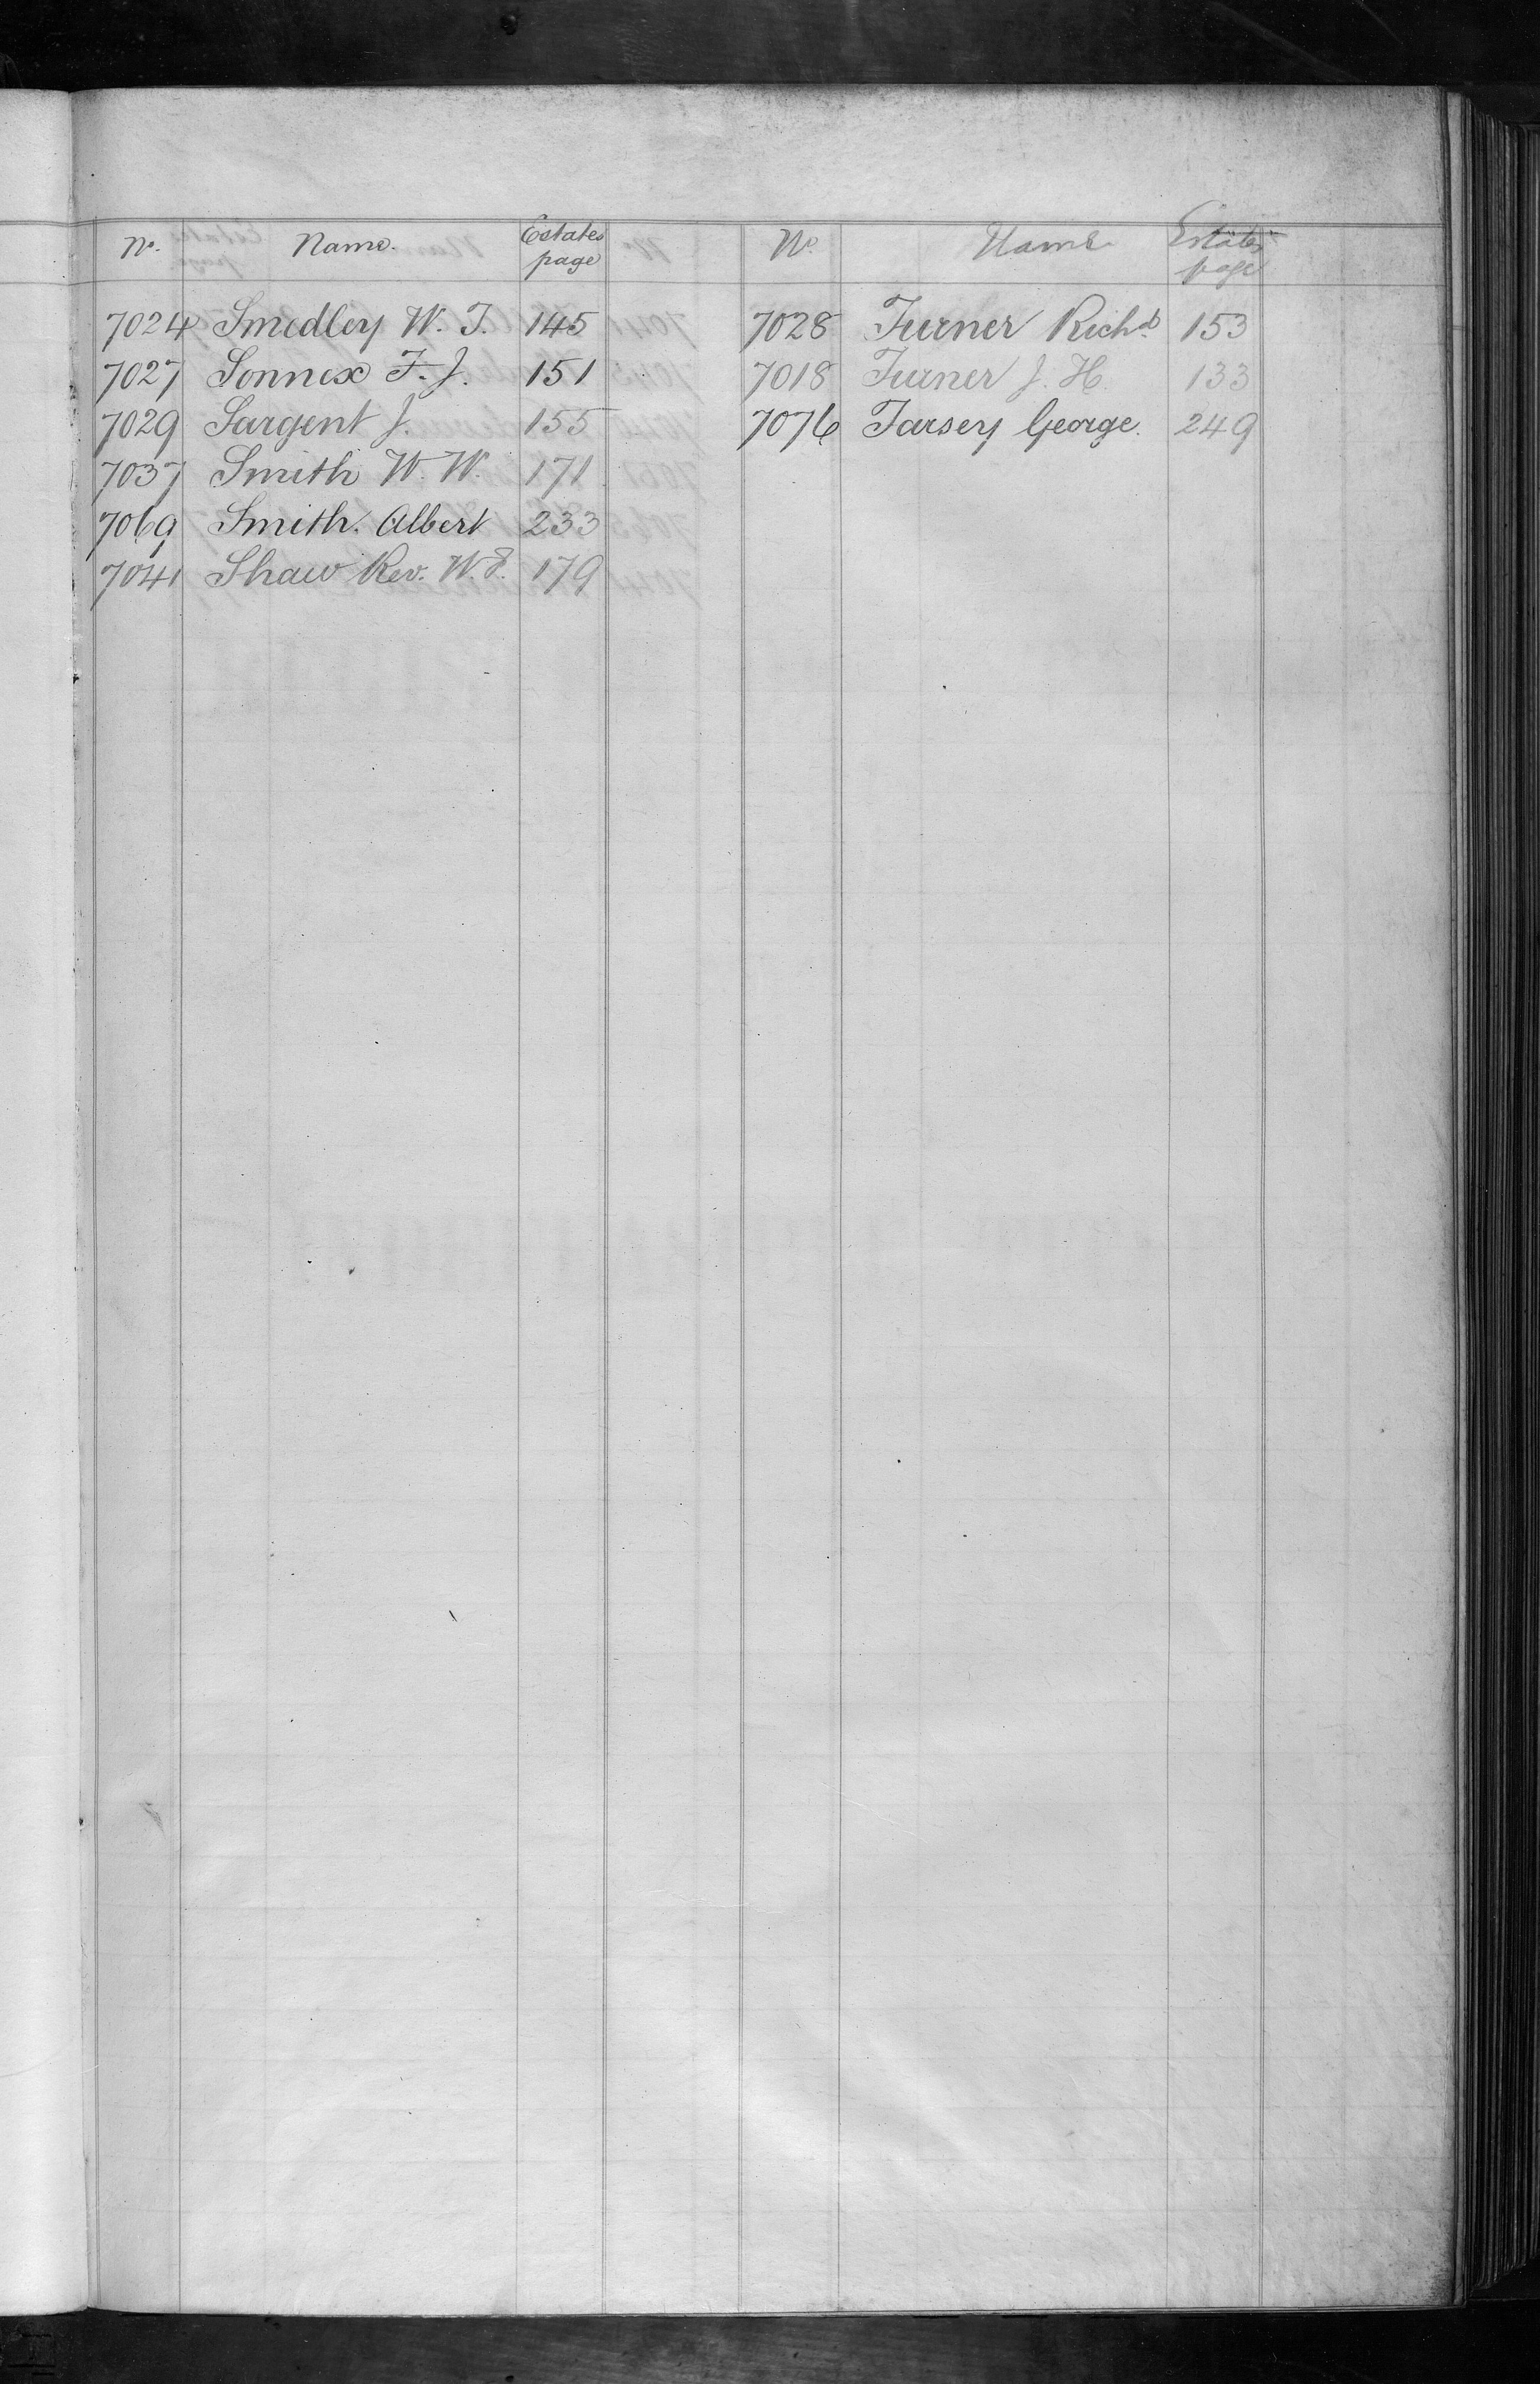 No. Name. Estates page
7024 Smedley W. T. 145
7027 Sonnex F. J. 151
7029 Sargent J. 155
7037 Smith W. W. 171
7069 Smith. Albert 233
7041 Shaw Rev. W. 179
No. Name Estates page
7028 Turner Richd. 153
7018 Turner J. H. 133
7076 Tarsey George. 249